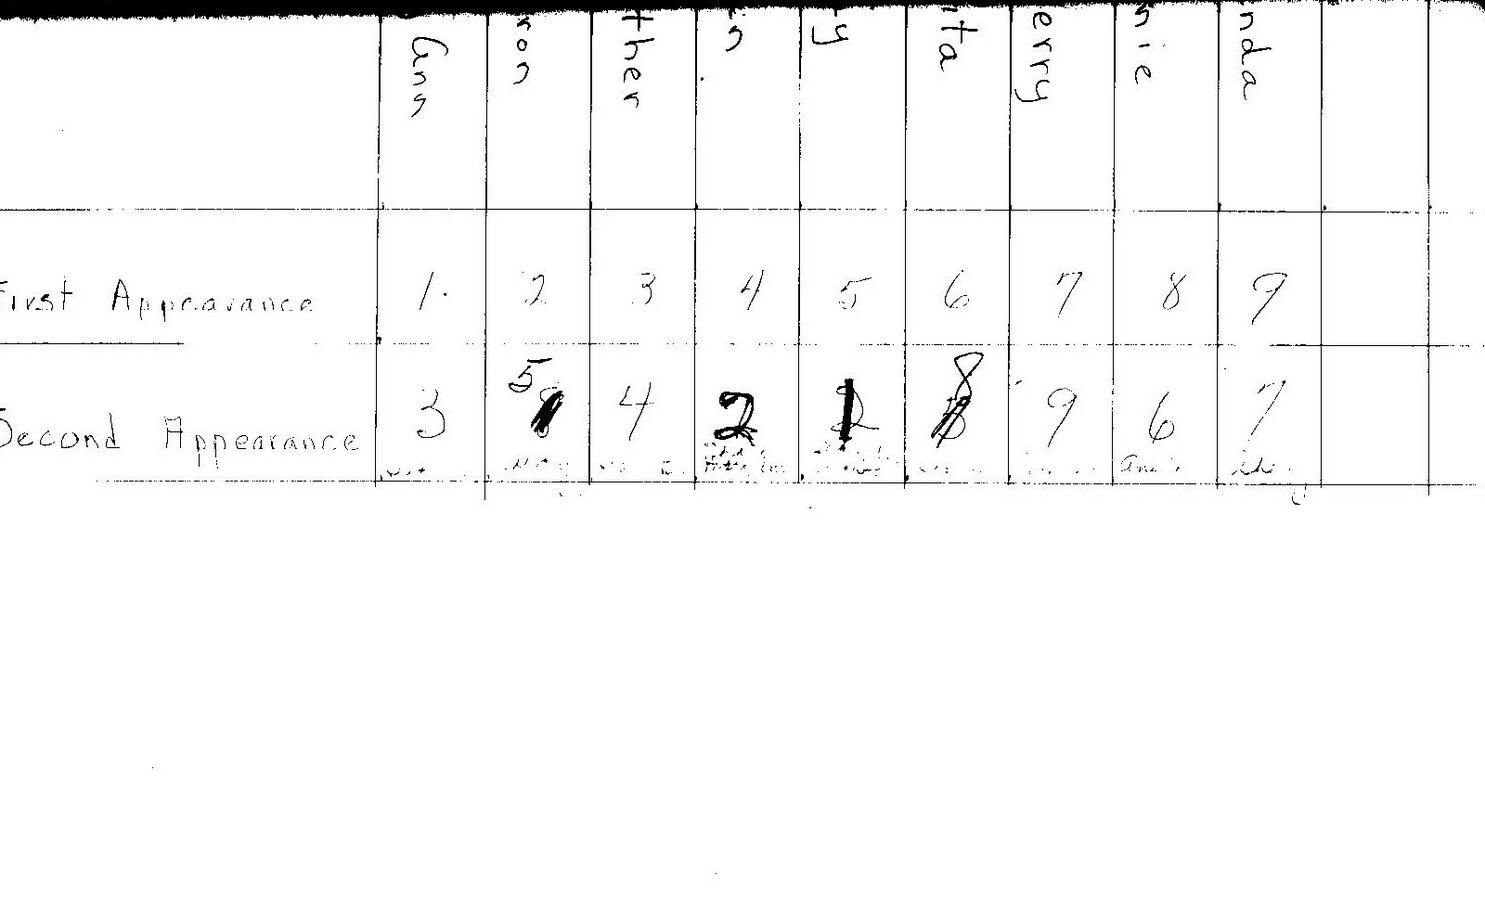 Ann ron ther in y ita erry nie nda
First Appearance 1. 2 3 4 5 6 7 8 9
Second Appearance 3 5 4 2 1 8 9 6 7